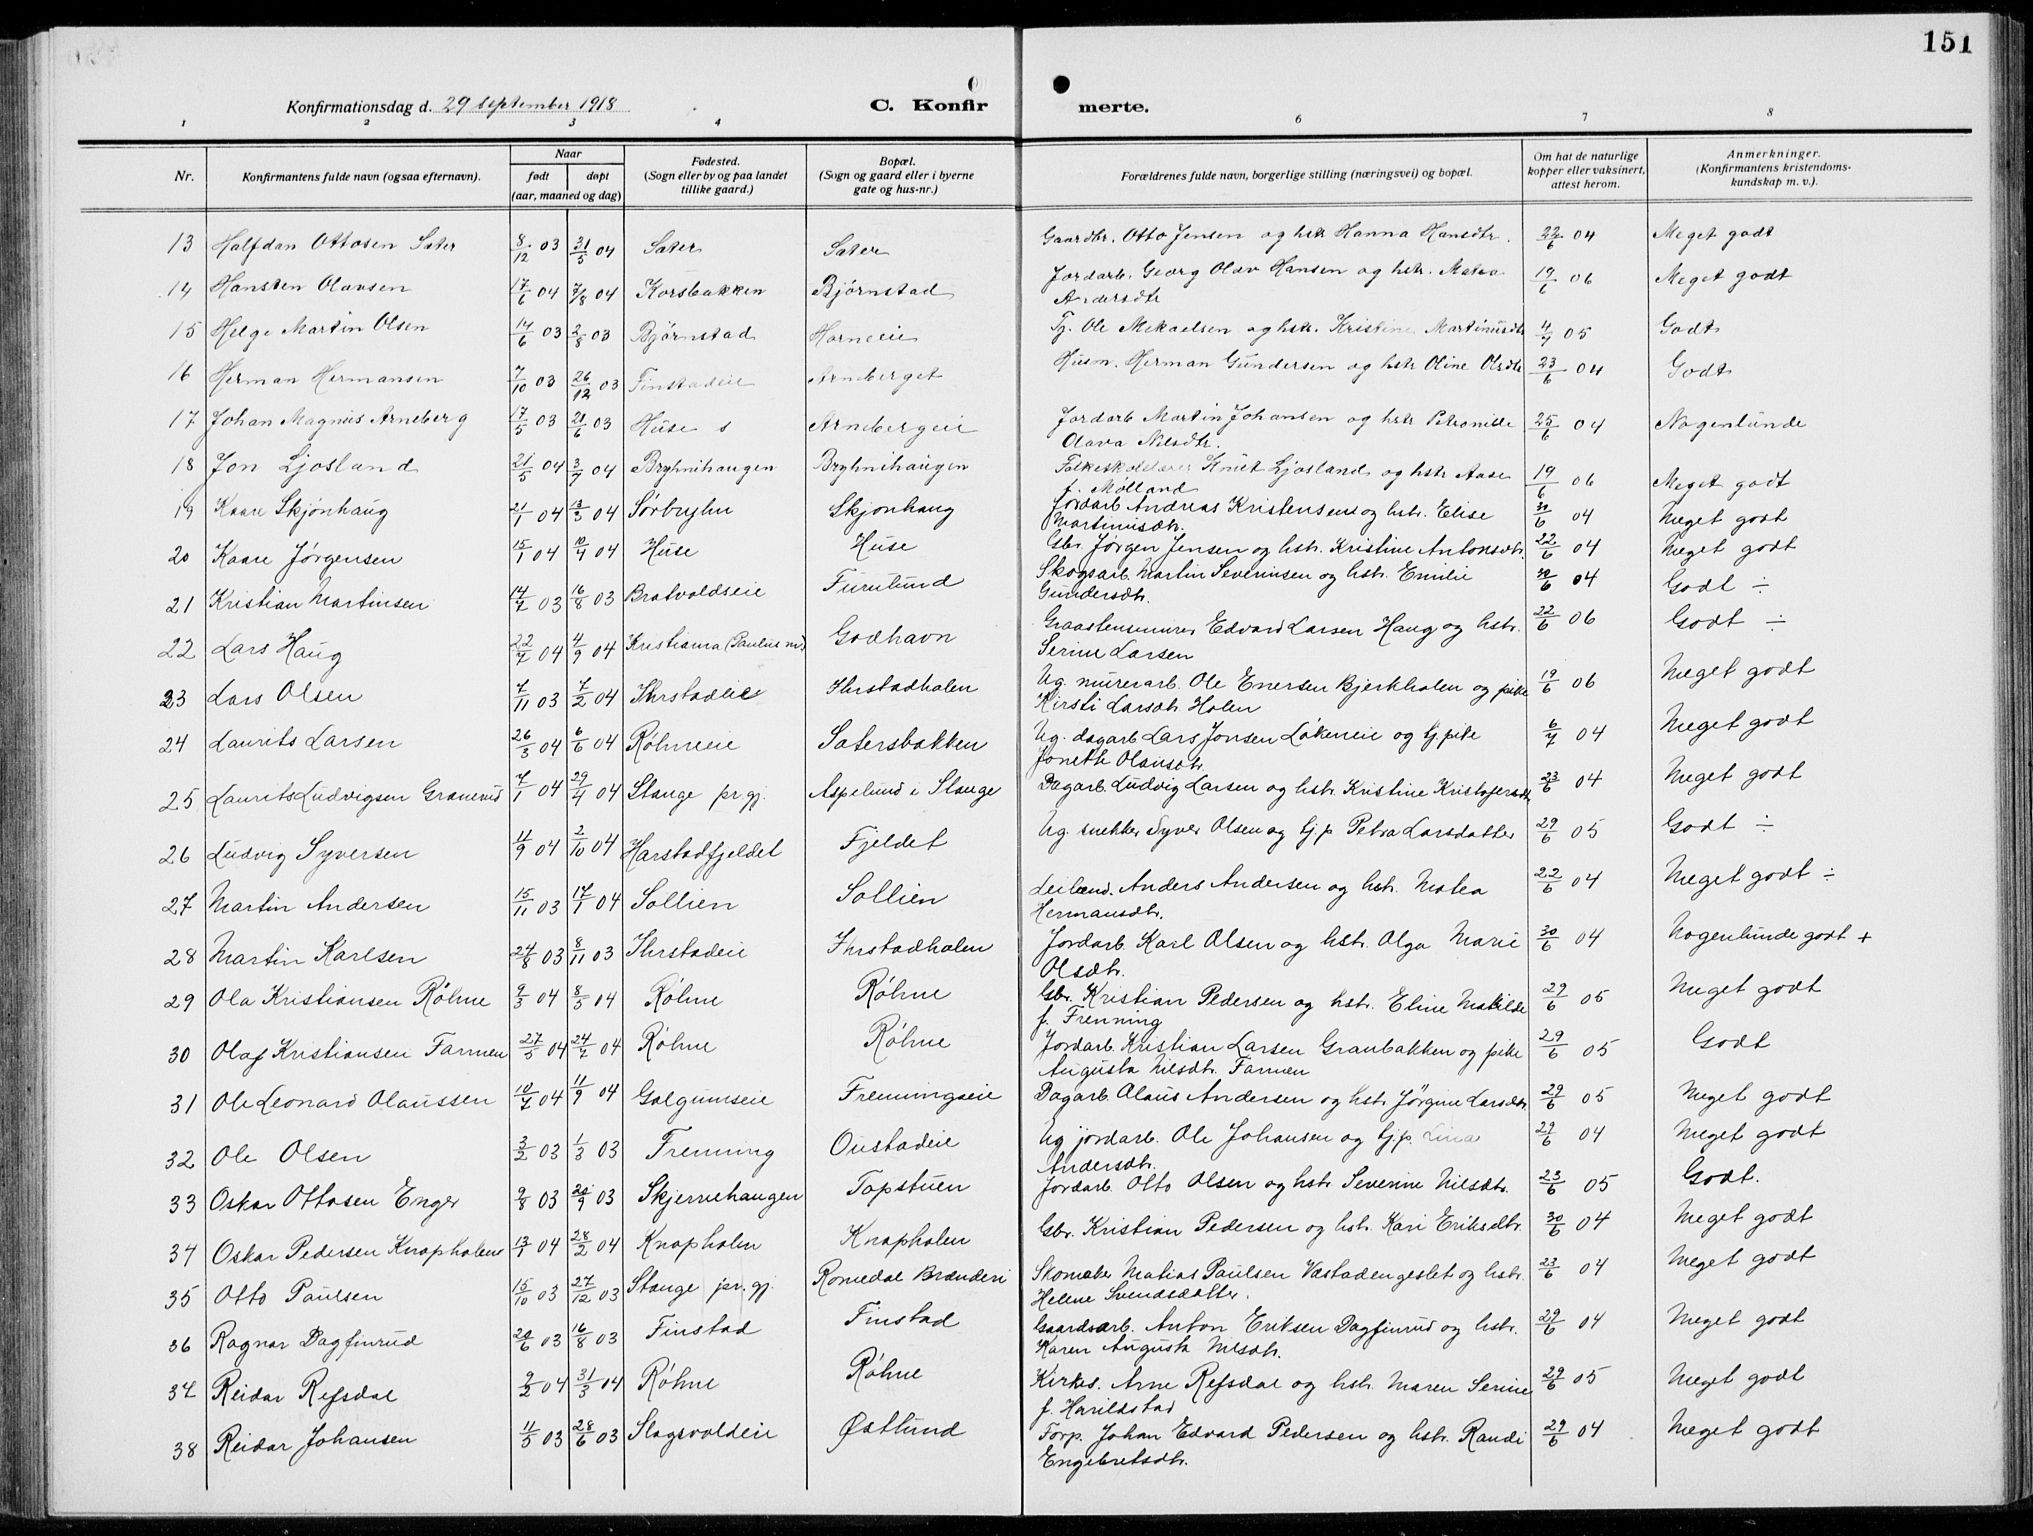 151
Konfirmationsdag d. 29 september 1918
C. Konfir
merte.
1 2 3 4 6 7 8
Nr.
Konfirmantens fulde navn (ogsaa efternavn).
Naar
født døpt
(aar, maaned og dag)
Fødested.
(Sogn eller by og paa landet
tillike gaard.)
Bopæl.
(Sogn og gaard eller i byerne
gate og hus-nr.)
Forældrenes fulde navn, borgerlige stilling (næringsvei) og bopæl.
Om hat de naturlige
kopper eller vaksinert,
attest herom.
Anmerkninger.
(Konfirmantens kristendoms-
kundskap m. v.).
13 Halfdan Ottosen Sater 8/12 03 31/5 04 Sater Sater Gaardbr. Otto Jensen og hstr Hanna Hansdtr. 22/6 04 Meget godt
14 Hansten Olavsen 17/6 04 7/8 04 Korsbakken Bjørnstad Jordarb. Georg Olav Hansen og hstr. Matea 19/6 06 Meget godt
Andersdtr
15 Helge Martin Olsen 14/6 03 2/8 03 Bjørnstad Horneeie Tj. Ole Mekaelsen og hstr. Kristine Martinusdtr 4/7 05 Godt
16 Herman Hermansen 7/10 03 26/12 03 Finstadeie Arneberget Husm. Herman Gundersen og hstr Oline Olsdtr 23/6 04 Godt
17 Johan Magnus Arneberg 17/5 03 21/6 03 Huse s Arnebergeie Jordarb Martin Johansen og hstr Petronille 25/6 04 Nogenlunde
Olava Nilsdtr.
18 Jon Ljosland 21/5 04 3/7 04 Bryhnihaugen Bryhnihaugen Folkeskolelærer Knut Ljosland og hstr Aase 19/6 06 Meget godt
f. Mølland
19 Kaare Skjønhaug 21/1 04 13/3 04 Sørbryhn Skjønhaug Jordarb Andreas Kristensen og hstr. Elise 30/6 04 Meget godt
Martinusdtr.
20 Kaare Jørgensen 15/1 04 10/4 04 Huse Huse Gbr. Jørgen Jensen og hstr. Kristine Antonsdtr. 22/6 04 Meget godt
21 Kristian Martinsen 14/7 03 16/8 03 Bratvoldseie Furulund Skogsarb. Martin Severinsen og hstr. Emilie 30/6 04 Godt ÷
Gundersdtr.
22 Lars Haug 22/7 04 4/9 04 Kristiania (Paulus m.) Godhavn Graastensmurer Edvard Larsen Haug og hstr. 22/6 06 Godt ÷
Serine Larsen
23 Lars Olsen 7/11 03 7/2 04 Ihrstadeie Ihrstadholen Ug. murerarb. Ole Enersen Bjerkholen og pike 19/6 06 Meget godt
Kirsti Larsdtr. Holen
24 Laurits Larsen 26/3 04 6/6 04 Røhneeie Satersbakken Ug. dagarb Lars Jonsen Løkeneie og tj.pike 6/7 04 Meget godt
Jonette Olausdtr.
25 Laurits Ludvigsen Granerud 7/1 04 29/4 04 Stange pr.gj. Aspelund i Stange Dagarb. Ludvig Larsen og hstr Kristine Kristofersdtr 23/6 04 Meget godt
26 Ludvig Syversen 11/9 04 2/10 04 Harstadfjeldet Fjeldet Ug. snekker Syver Olsen og tj.p Petra Larsdatter 29/6 05 Godt ÷
27 Martin Andersen 15/11 03 17/1 04 Sollien Sollien Leilænd. Anders Andersen og hstr. Matea 22/6 04 Meget godt ÷
Hermansdtr.
28 Martin Karlsen 24/8 03 8/11 03 Ihrstadeie Ihrstadholen Jordarb. Karl Olsen og hstr. Olga Marie 30/6 04 Nogenlunde godt +
Olsdtr.
29 Ola Kristiansen Røhne 9/3 04 8/5 04 Røhne Røhne Gbr. Kristian Pedersen og hstr. Eline Matilde 29/6 05 Meget godt
f. Frenning
30 Olaf Kristiansen Farmen 27/5 04 24/7 04 Røhne Røhne Jordarb. Kristian Larsen Granbakken og pike 29/6 05 Godt
Augusta Nilsdtr. Farmen
31 Ole Leonard Olaussen 10/7 04 11/9 04 Golgumseie Frenningseie Dagarb. Olaus Andersen og hstr Jørgine Larsdtr 29/6 05 Meget godt
32 Ole Olsen 3/2 03 1/3 03 Frenning Oustadeie Ug jordarb. Ole Johansen og tj.p. Lina 29/6 04 Meget godt
Andersdtr.
33 Oskar Ottosen Enger 9/8 03 20/9 03 Skjervehaugen Topstuen Jordarb. Otto Olsen og hstr Severine Nilsdtr. 23/6 05 Godt.
34 Oskar Pedersen Knapholen 13/1 04 28/2 04 Knapholen Knapholen Gbr. Kristian Pedersen og hstr. Kari Eriksdtr. 30/6 04 Meget godt
35 Otto Paulsen 15/10 03 27/12 03 Stange pr.gj. Romedal Brænderi Skomaker Matias Paulsen Vastadengeslet og hstr. 23/6 04 Meget godt
Helene Svendsdatter.
36 Ragnar Dagfinrud 20/6 03 16/8 03 Finstad Finstad Gaardsarb. Anton Eriksen Dagfinrud og hstr. 29/6 04 Meget godt
Karen Augusta Nilsdtr.
37 Reidar Refsdal 9/2 04 31/3 04 Røhne Røhne Kirkes. Arne Refsdal og hstr. Maren Serine 29/6 05 Meget godt
f. Harildstad
38 Reidar Johansen 11/5 03 28/6 03 Slagsvoldeie Østlund Forp. Johan Edvard Pedersen og hstr. Randi 29/6 04 Meget godt
Engebretsdtr.